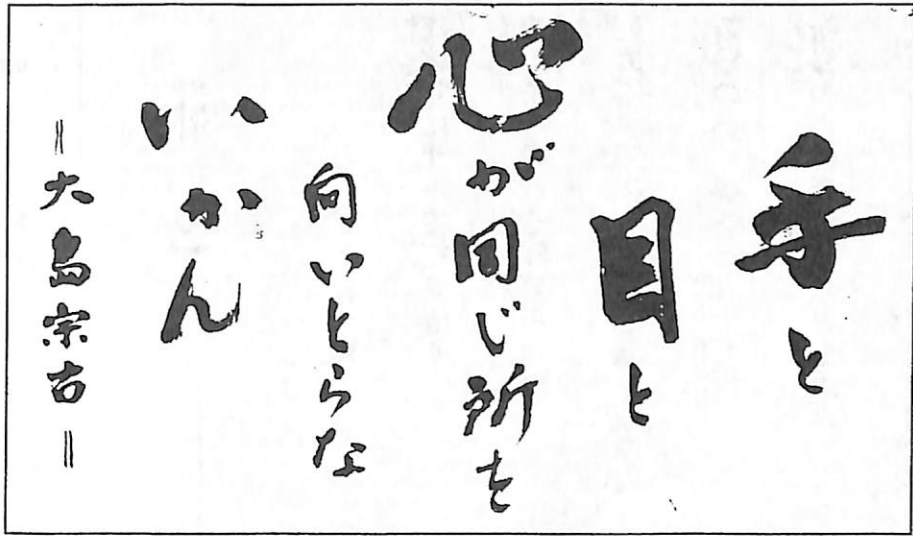 手と
目と
心が同じ所を
向いとらな
いかん
=大島宗古=